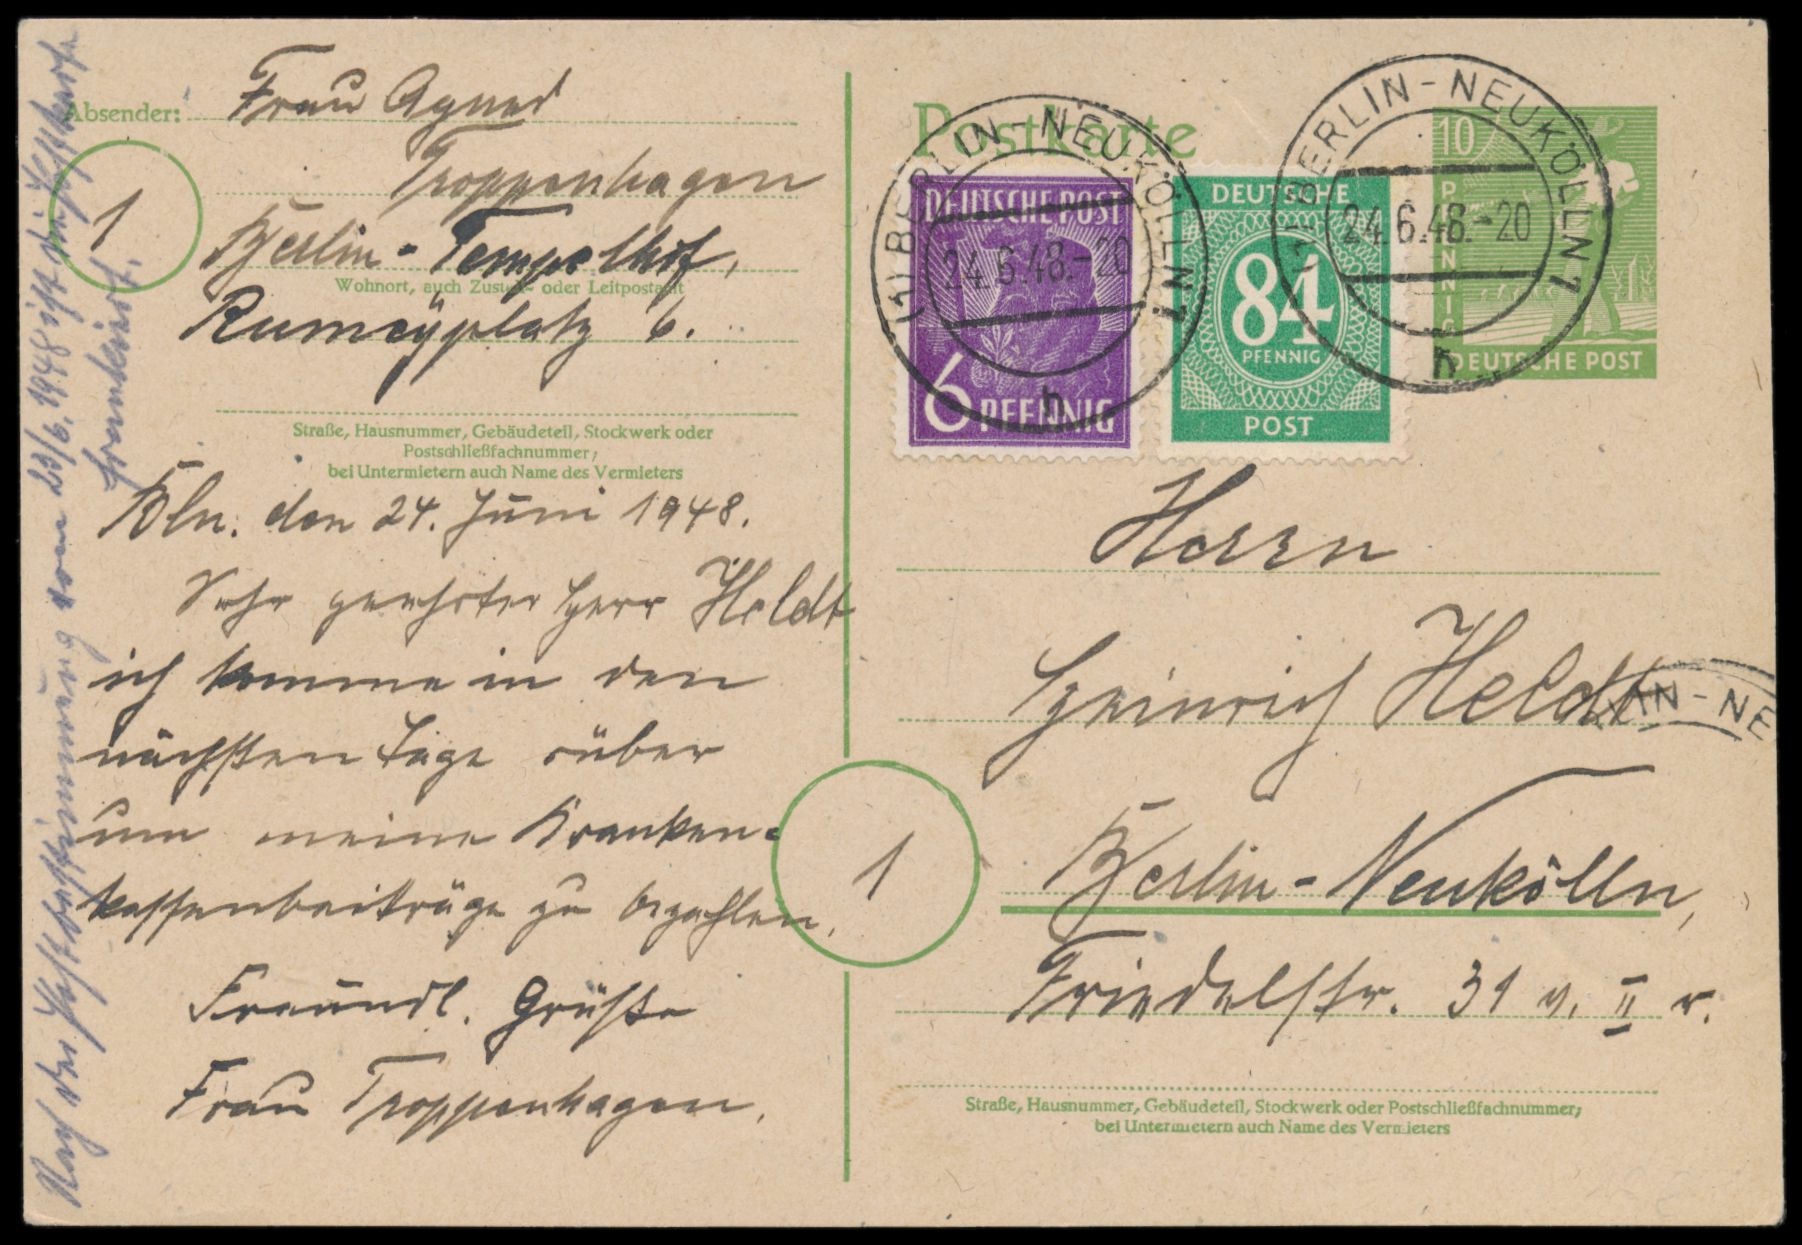 Absender: Frau Agnes
Troppenhagen
Berlin - Tempelhof,
Wohnort, auch Zustell- oder Leitpostamt
Rumeyplatz 6.
Straße, Hausnummer, Gebäudeteil, Stockwerk oder
Postschließfachnummer;
bei Untermietern auch Name des Vermieters
1
Bln. den 24. Juni 1948.
Sehr geehrter Herr Heldt
ich komme in den
nächsten Tage rüber
um meine Kranken-
kassenbeiträge zu bezahlen.
Freundl. Grüße
Frau Troppenhagen.
Nach der Postbestimmung vom 23/6. 1948 ist die Postkarte
frankiert.
Postkarte
BERLIN-NEUKÖLLN 1
24.6.48.-20
h
DEUTSCHE POST
6 PFENNIG
DEUTSCHE
84
PFENNIG
POST
BERLIN-NEUKÖLLN 1
24.6.48.-20
h
10
PFENNIG
DEUTSCHE POST
Herrn
Heinrich Heldt
LIN-NE
1
Berlin - Neukölln,
Friedelstr. 31 v. II r.
Straße, Hausnummer, Gebäudeteil, Stockwerk oder Postschließfachnummer;
bei Untermietern auch Name des Vermieters